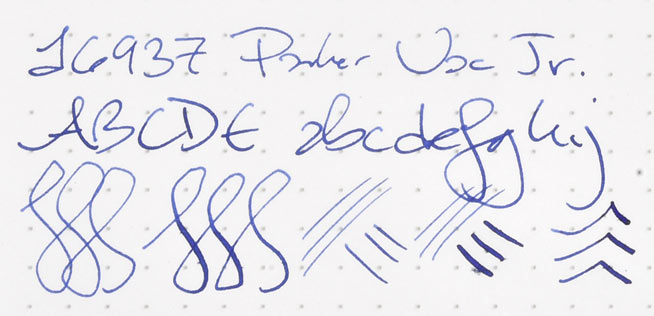 16937 Parker Vac Jr.
ABCDE abcdefghij